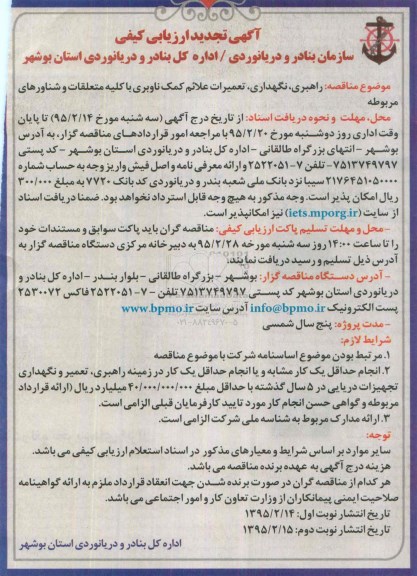 آگهی تجدید ارزیابی کیفی
سازمان بنادر و دریانوردی / اداره کل بنادر و دریانوردی استان بوشهر
موضوع مناقصه: راهبری، نگهداری، تعمیرات علائم کمک ناوبری با کلیه متعلقات و شناورهای
مربوطه
محل، مهلت و نحوه دریافت اسناد: از تاریخ درج آگهی (سه شنبه مورخ ۹۵/۲/۱۴) تا پایان
وقت اداری روز دوشنبه مورخ ۹۵/۲/۲۰ با مراجعه امور قراردادهای مناقصه گزار، به آدرس
بوشهر - انتهای بزرگراه طالقانی - اداره کل بنادر و دریانوردی استان بوشهر - کد پستی
۷۵۱۳۷۴۹۷۹۷- تلفن ۷-۲۵۲۲۰۵۱ و ارائه معرفی نامه و اصل فیش واریز وجه به حساب شماره
۲۱۷۶۴۵۱۰۵۰۰۰۰ سیبا نزد بانک ملی شعبه بندر و دریانوردی کد بانک ۷۷۲۰ به مبلغ ۳۰۰/۰۰۰
ریال امکان پذیر است. وجه مذکور به هیچ وجه قابل استرداد نخواهد بود. ضمنا دریافت اسناد
از سایت (iets.mporg.ir) نیز امکانپذیر است.
-محل و مهلت تسلیم پاکت ارزیابی کیفی: مناقصه گران باید پاکت سوابق و مستندات خود
را تا ساعت ۱۴:۰۰ روز سه شنبه مورخه ۹۵/۲/۲۸ به دبیرخانه مرکزی دستگاه مناقصه گزار به
آدرس ذیل تسلیم و رسید دریافت نمایند.
- آدرس دستگاه مناقصه گزار: بوشهر - بزرگراه طالقانی - بلوار بندر - اداره کل بنادر و
دریانوردی استان بوشهر کد پستی ۷۵۱۳۷۴۹۷۹۷ تلفن ۷-۲۵۲۲۰۵۱ فاکس ۲۵۳۰۰۷۲
پست الکترونیک info@bpmo.ir آدرس سایت www.bpmo.ir
- مدت پروژه: پنج سال شمسی
شرایط لازم:
۱. مرتبط بودن موضوع اساسنامه شرکت با موضوع مناقصه
۲. انجام حداقل یک کار مشابه و یا انجام حداقل یک کار در زمینه راهبری، تعمیر و نگهداری
تجهیزات دریایی در ۵ سال گذشته با حداقل مبلغ ۴۰/۰۰۰/۰۰۰/۰۰۰ میلیارد ریال (ارائه قرارداد
مربوطه و گواهی حسن انجام کار مورد تایید کارفرمایان قبلی الزامی است.
۳. ارائه مدارک مربوط به شناسه ملی شرکت الزامی است.
توجه:
سایر موارد بر اساس شرایط و معیارهای مذکور در اسناد استعلام ارزیابی کیفی می باشد.
هزینه درج آگهی به عهده برنده مناقصه می باشد.
هر کدام از مناقصه گران در صورت برنده شدن جهت انعقاد قرارداد ملزم به ارائه گواهینامه
صلاحیت ایمنی پیمانکاران از وزارت تعاون کار و امور اجتماعی می باشد.
تاریخ انتشار نوبت اول: ۱۳۹۵/۲/۱۴
تاریخ انتشار نوبت دوم: ۱۳۹۵/۲/۱۵
اداره کل بنادر و دریانوردی استان بوشهر